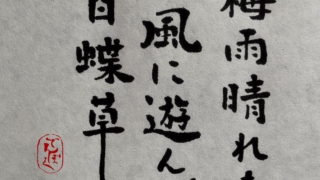 梅雨晴れ
風に遊ん
白蝶草